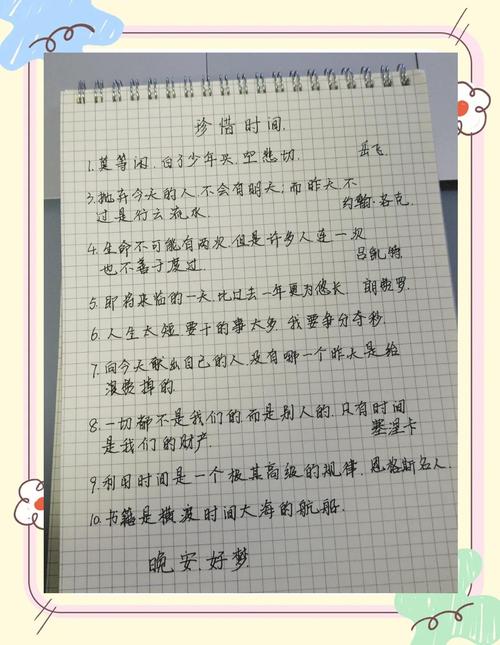 珍惜时间.
1.莫等闲.白了少年头.空悲切. 岳飞.
3.抛弃今天的人.不会有明天;而昨天.不
过是行云流水. 约翰·洛克.
4.生命不可能有两次.但是许多人连一次
也不善于度过. 吕凯特
5.即将来临的一天.比过去一年更为悠长. 朗费罗.
6.人生太短.要干的事太多.我要争分夺秒.
7.向今天献出自己的人.没有哪一个昨天是给
浪费掉的.
8.一切都不是我们的.而是别人的.只有时间
是我们的财产. 塞涅卡
9.利用时间是一个极其高级的规律.恩格斯名人.
10.书籍是横渡时间大海的航船.
晚安.好梦.